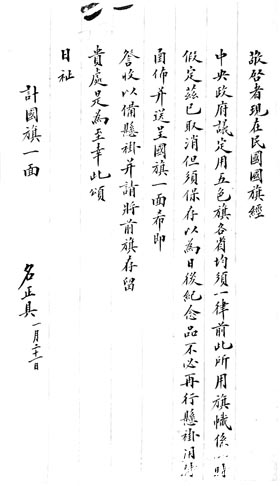 敬啓者現在民國國旗經
中央政府議定用五色旗各省均須一律前此所用旗幟係一時
假定茲已取消但須保存以為日後紀念品不必再行懸掛用特
函佈并送呈國旗一面希即
詧收以備懸掛并請將前旗存留
貴處是為至幸此頌
日祉
計國旗一面
名正具 一月二十一日